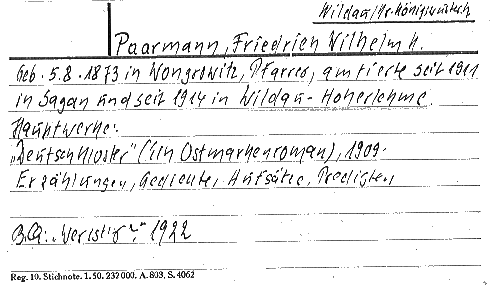 Wildau/Kr. Königswusterh.
Paarmann, Friedrich Wilhelm H.
Geb. 5.8.1873 in Wongrowitz, Pfarrer, amtierte seit 1911
in Sagan und seit 1914 in Wildau-Hoherlehme.
Hauptwerke:
„Deutschkloster" (Ein Ostmarkenroman), 1909.
Erzählungen, Gedichte, Aufsätze, Predigten
B.Q: „Wer ist's?" 1922
Reg. 10. Stichnote. 1. 50. 232000. A. 803. S. 4062